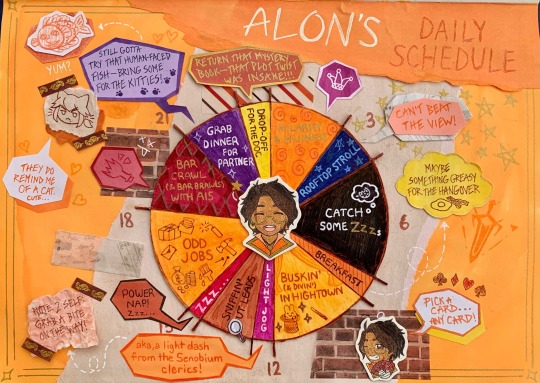 ALON'S
DAILY
SCHEDULE
STILL GOTTA
TRY THAT HUMAN-FACED
FISH—BRING SOME
FOR THE KITTIES!
RETURN THAT MYSTERY
BOOK—THAT PLOT TWIST
WAS INSANE!!!
YUM?
CAN'T BEAT
THE VIEW!
THEY DO
REMIND ME
OF A CAT.
CUTE...
MAYBE
SOMETHING GREASY
FOR THE HANGOVER
2
3
6
12
18
GRAB
DINNER
FOR
PARTNER
DROP-OFF
FOR THE DOC
ROOFTOP STROLL
CATCH
SOME ZZZs
BREAKFAST
BUSKIN'
(& DIVIN')
IN HIGHTOWN
LIGHT JOG
SNIFFIN'
OUT LEADS
ZZZ...
ODD
JOBS
BAR
CRAWL
(& BAR BRAWLS)
WITH AIS
POWER
NAP!
ZZZ...
NOTE 2 SELF:
GRAB A BITE
ON THE WAY!
aka, a light dash
from the Senobium
clerics!
PICK A
CARD...
ANY CARD!